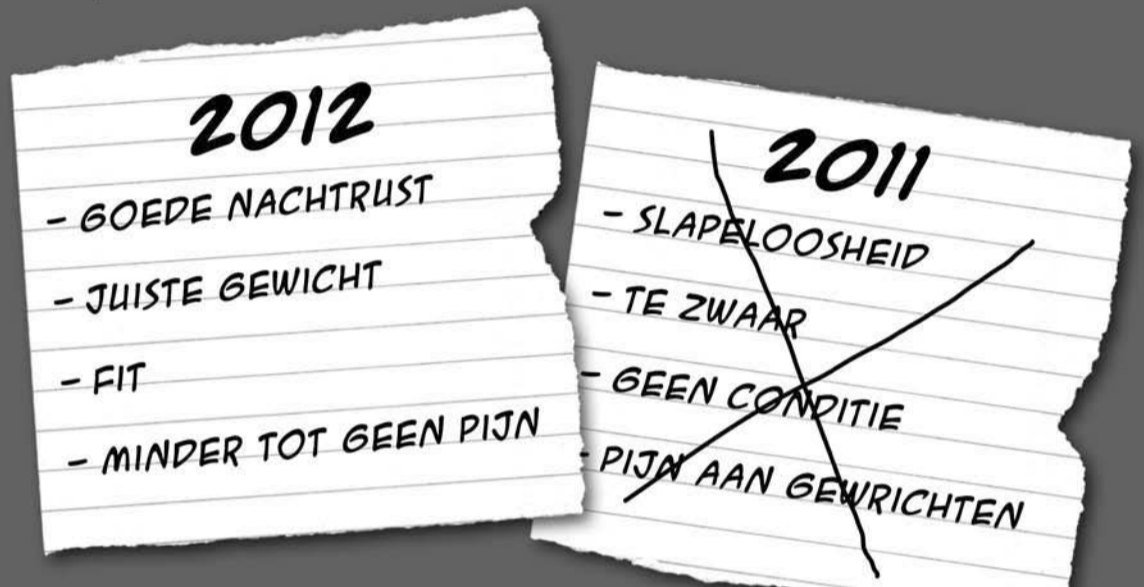 2012
- GOEDE NACHTRUST
- JUISTE GEWICHT
- FIT
- MINDER TOT GEEN PIJN
2011
- SLAPELOOSHEID
- TE ZWAAR
- GEEN CONDITIE
- PIJN AAN GEWRICHTEN